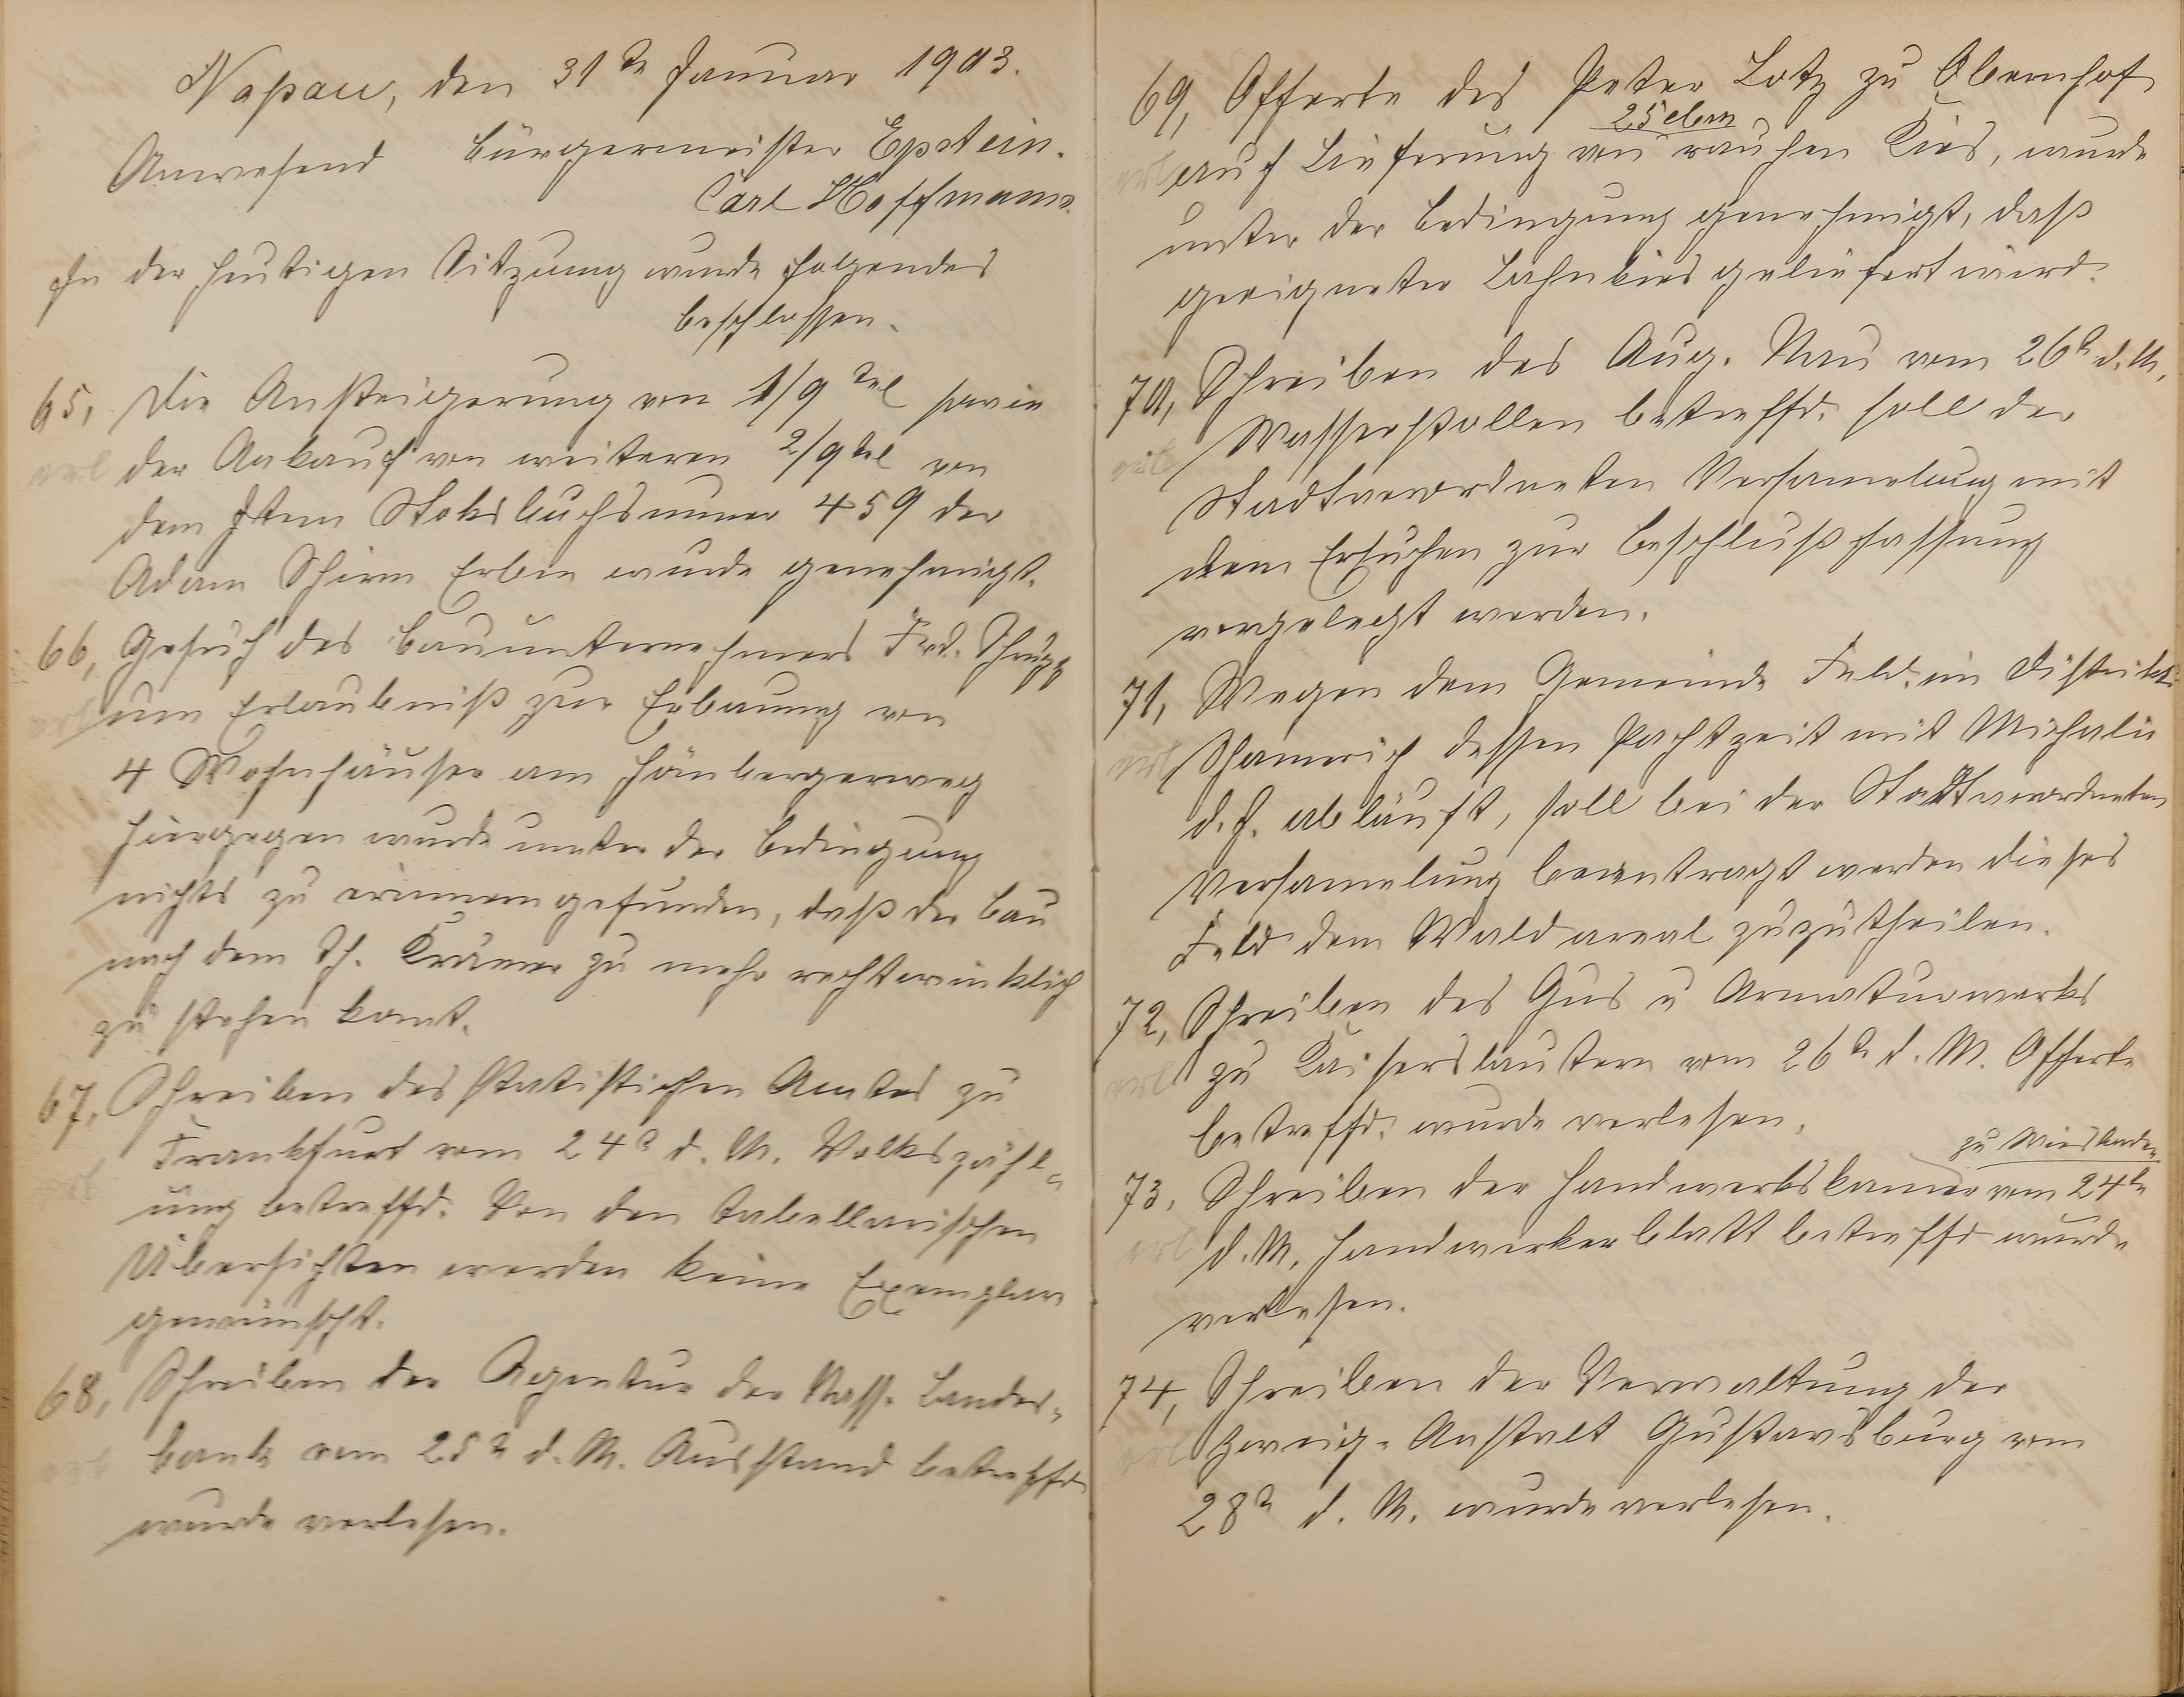 Naßau, den 31te Januar 1903.
Anwesend Bürgermeister Epstein.
Carl Hoffmann.
In der heutigen Sitzung wurde folgendes
beschlossen.
65, Die Ansteigerung von 1/9tel sowie
erl der Ankauf von weiteren 2/9tel von
dem Item Stoksbuchsnumer 459 der
Adam Schirm Erben wurde genehmigt.
66, Gesuch des Bauunternehmers Frd. Schupp
erl um Erlaubniß zur Erbauung von
4 Wohnhäuser am Hömbergerweg
Hiergegen wurde unter der Bedingung
nichts zu erinnern gefunden, daß der Bau
nach dem Th. Kramer zu mehr rechtwinklich
zu stehen komt.
67, Schreiben des statistischen Amtes zu
erl Frankfurt vom 24te d. M. Volkszähl-
ung betreffd. Von den tabellarischen
Übersichten werden keine Exemplare
gewünscht.
68, Schreiben der Agentur der Nass. Landes-
erl bank vom 25te d. M. Ausstand betreffd
wurde verlesen.
69, Offerte des Peter Lotz zu Obernhof
25 cbm
erl auf Lieferung von rauhen Kies, wurde
unter der Bedingung genehmigt, daß
geeigneter Lahnkies geliefert wird.
70, Schreiben des Aug. Nau vom 26te d. M.
Wasserstollen betreffd. soll der
Stadtverordneten Versamelung mit
dem Ersuchen zur Beschlußfassung
vorgelegt werden.
71, Wegen dem Gemeinde Feld im Distrikt
erl dessen Pachtzeit mit Michalie
d. J. abläuft, soll bei der Stadtverordneten
Versamelung beantragt werden dieses
Feld dem Waldareal zuzutheilen.
72, Schreiben des Gus u Armaturwerks
erl zu Kaiserslautern vom 26te d. M. Offerte
betreffd. wurde verlesen.
zu Wiesbaden
73, Schreiben der Handwerkskamer vom 24te
erl d. M. Handwerkerblatt betreffd wurde
verlesen.
74, Schreiben der Verwaltung der
erl Zweig-Anstalt Gustavsburg vom
28te d. M. wurde verlesen.